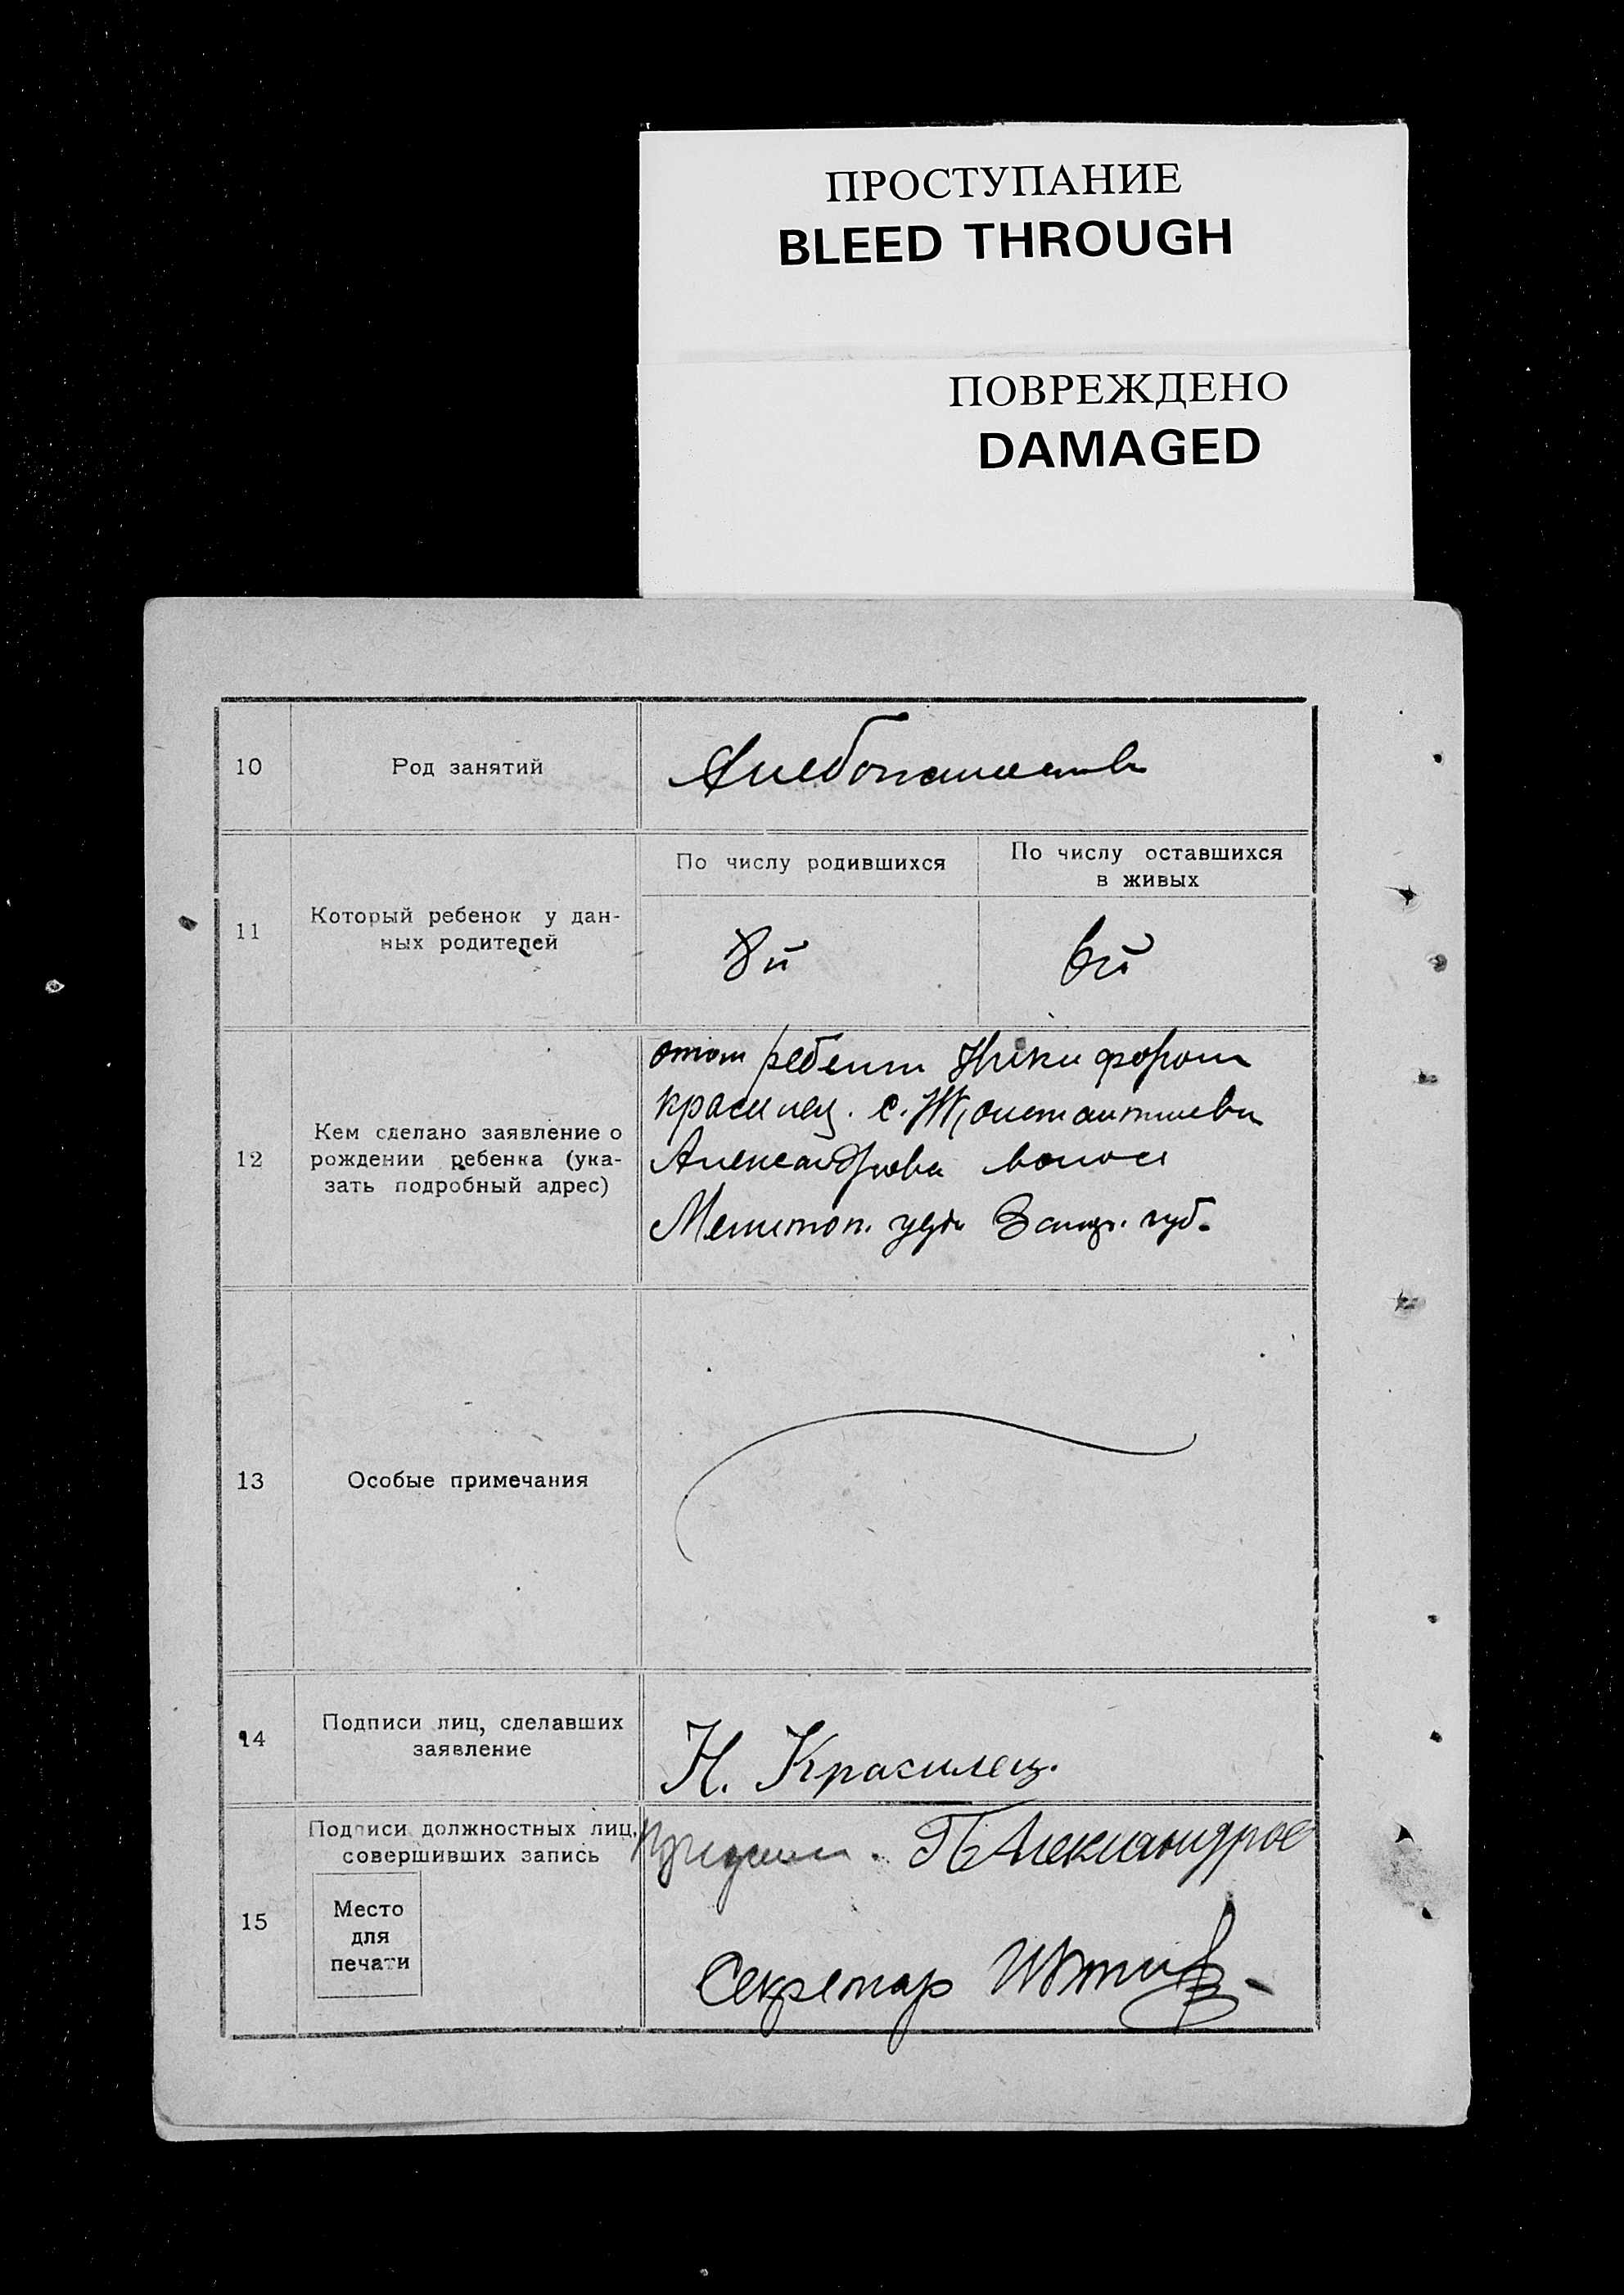 ПРОСТУПАНИЕ
BLEED THROUGH
ПОВРЕЖДЕНО
DAMAGED
10
Род занятий
11
Который ребенок у дан-
ных родителей
По числу родившихся
По числу оставшихся
в живых
8й
6й
12
Кем сделано заявление о
рождении ребенка (ука-
зать подробный адрес)
отцом
Красилец. с. Константиновки
волости
Мелитоп. губ.
13
Особые примечания
14
Подписи лиц, сделавших
заявление
Н. Красилец.
15
Подписи должностных лиц,
совершивших запись
Место
для
печати
Секретар